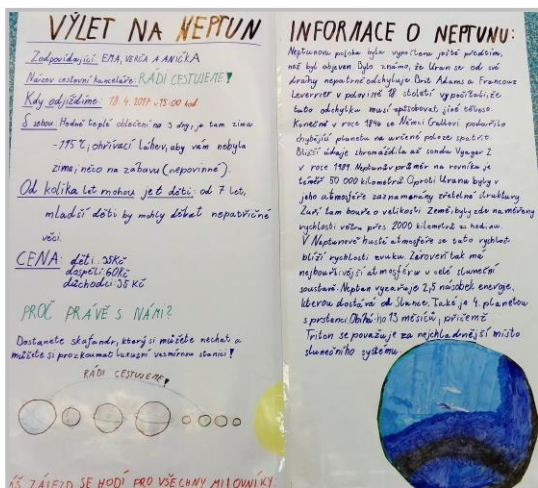 VÝLET NA NEPTUN
Zodpovídající: EMA, VERČA A ANIČKA
Název cestovní kanceláře: RÁDI CESTUJEME!
Kdy odjíždíme: 18.4.2017 v 15:00 hod
S sebou: Hodně teplé oblečení na 3 dny, je tam zima
-195°C, ohřívací láhev, aby vám nebyla
zima, něco na zábavu (nepovinné).
Od kolika let mohou jet děti: od 7 let,
mladší děti by mohly dělat nepatřičné
věci.
CENA: děti: 35Kč
dospělí: 60Kč
důchodci: 35 Kč
PROČ PRÁVĚ S NÁMI?
Dostanete skafandr, který si můžete nechat a
můžete si prozkoumat luxusní vesmírnou stanici!
RÁDI CESTUJEME!
NÁŠ ZÁJEZD SE HODÍ PRO VŠECHNY MILOVNÍKY
INFORMACE O NEPTUNU:
Neptunova poloha byla vypočítena ještě předtím,
než byl objeven. Bylo známo, že Uran se od své
dráhy nepatrně odchyluje. Brit Adams a Francouz
Leverrier v polovině 19 století vypočítali, že
tuto odchylku musí způsobovat jiné těleso.
Konečně v roce 1846 se Němci Gallovi podařilo
chybějící planetu na určené poloze spatřit.
Bližší údaje shromáždila až sonda Vyager 2
v roce 1989. Neptunův průměr na rovníku je
téměř 50 000 kilometrů. Oproti Uranu byly v
jeho atmosféře zaznamenány zřetelné struktury
Zuří tam bouře o velikosti Země, byly zde naměřeny
rychlosti větru přes 2000 kilometrů za hodinu.
V Neptunově husté atmosféře se tato rychlost
blíží rychlosti zvuku. Zároveň tak má
nejbouřlivější atmosféru v celé sluneční
soustavě. Neptun vyzařuje 2,5 násobek energie,
kterou dostává od Slunce. Také je 4. planetou
s prstenci. Obíhá ho 13 měsíců, přičemž
Triton se považuje za nejchladnější místo
slunečního systému.